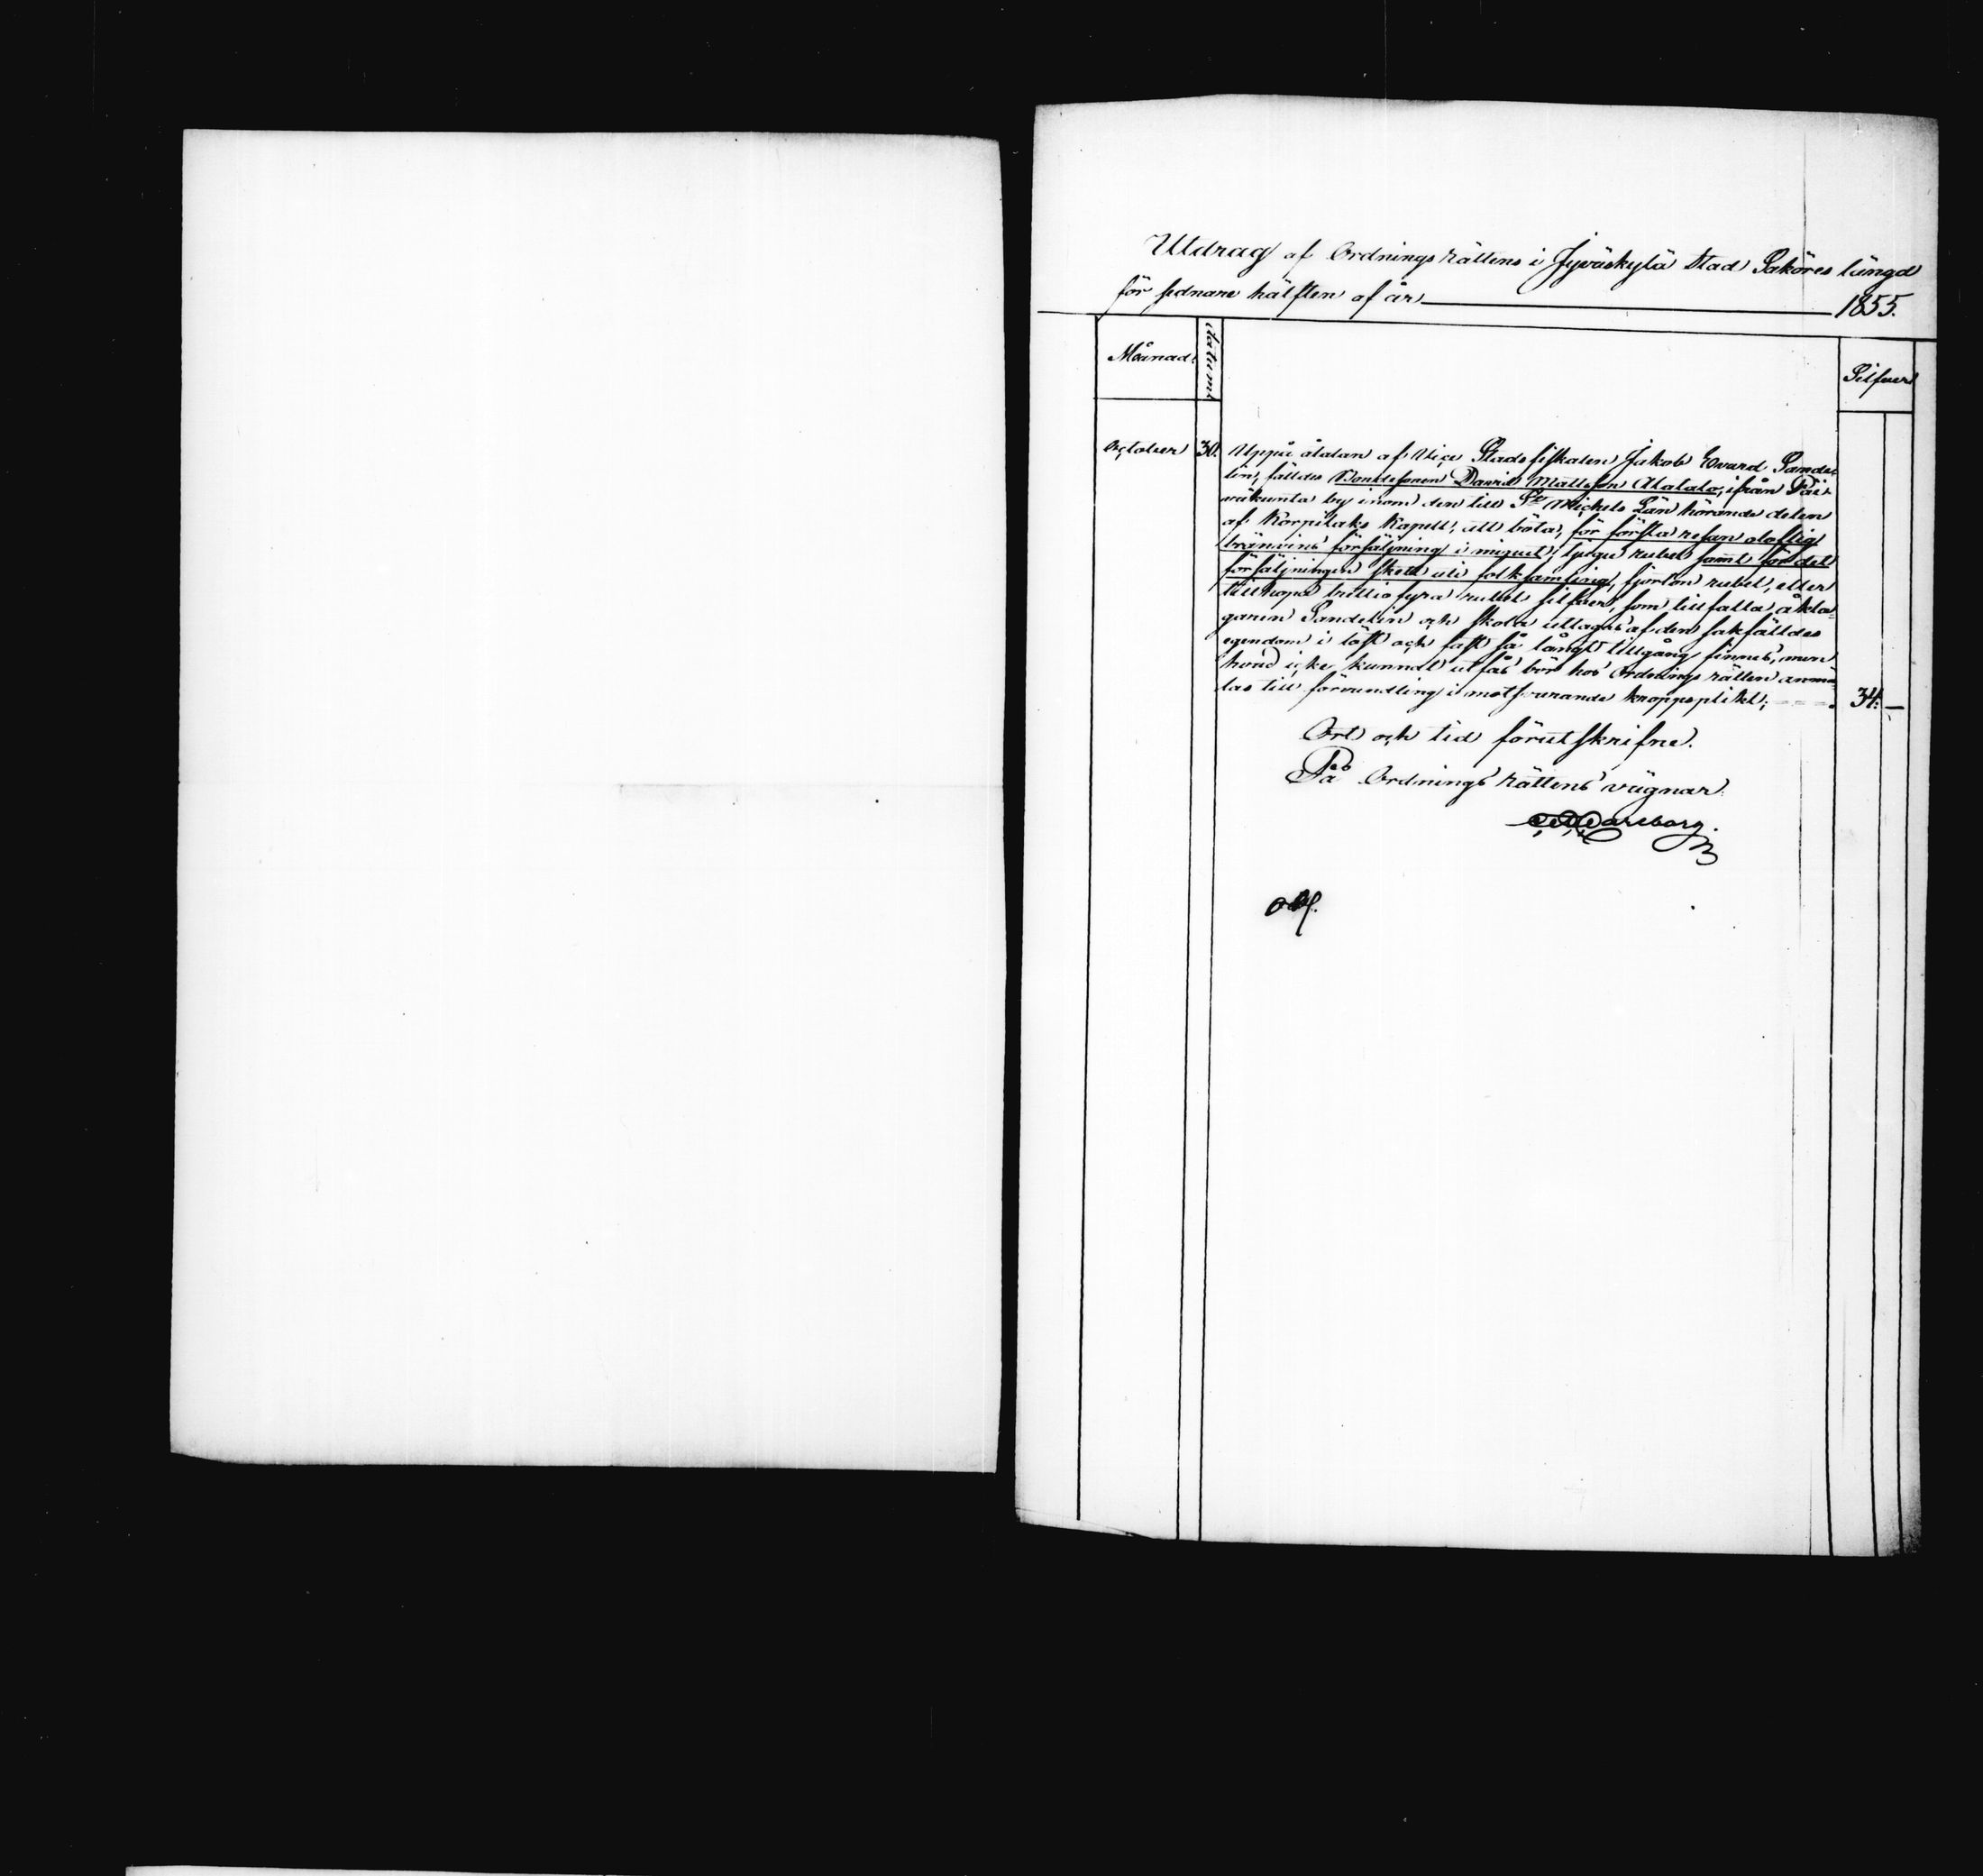 Utdrag af Ordnings Rättens i Jyväskylä Stad Saköres längd
för sednare hälften af år 1855.
Månad.
datum
Silfver
October
30.
Uppå åtalan af Vice Stadsfiskalen Jakob Evard Sande-
lin, fälldes Bondesonen David Mattsson Alatalo, ifrån Päi-
väkunta by inom den till St Michels Län hörande delen
af Korpilaks Kapell, att böta, för första resan oloflig
bränvins försäljning i minut, tjugu rubel samt för det
försäljningen skett uti folksamling, fjorton rubel, eller
tillhopa trettiofyra rubel silfver, som tillfalla åkla-
garen Sandelin och skola uttagas af den sakfälldes
egendom i löst och fast så långt tillgång finnes, men
hvad icke kunnat utfås bör hos Ordnings rätten anmä-
las till förvandling i motsvarande kroppsplikt;
34. —
Ort och tid förutskrifne.
På Ordnings Rättens vägnar
Carlborg.